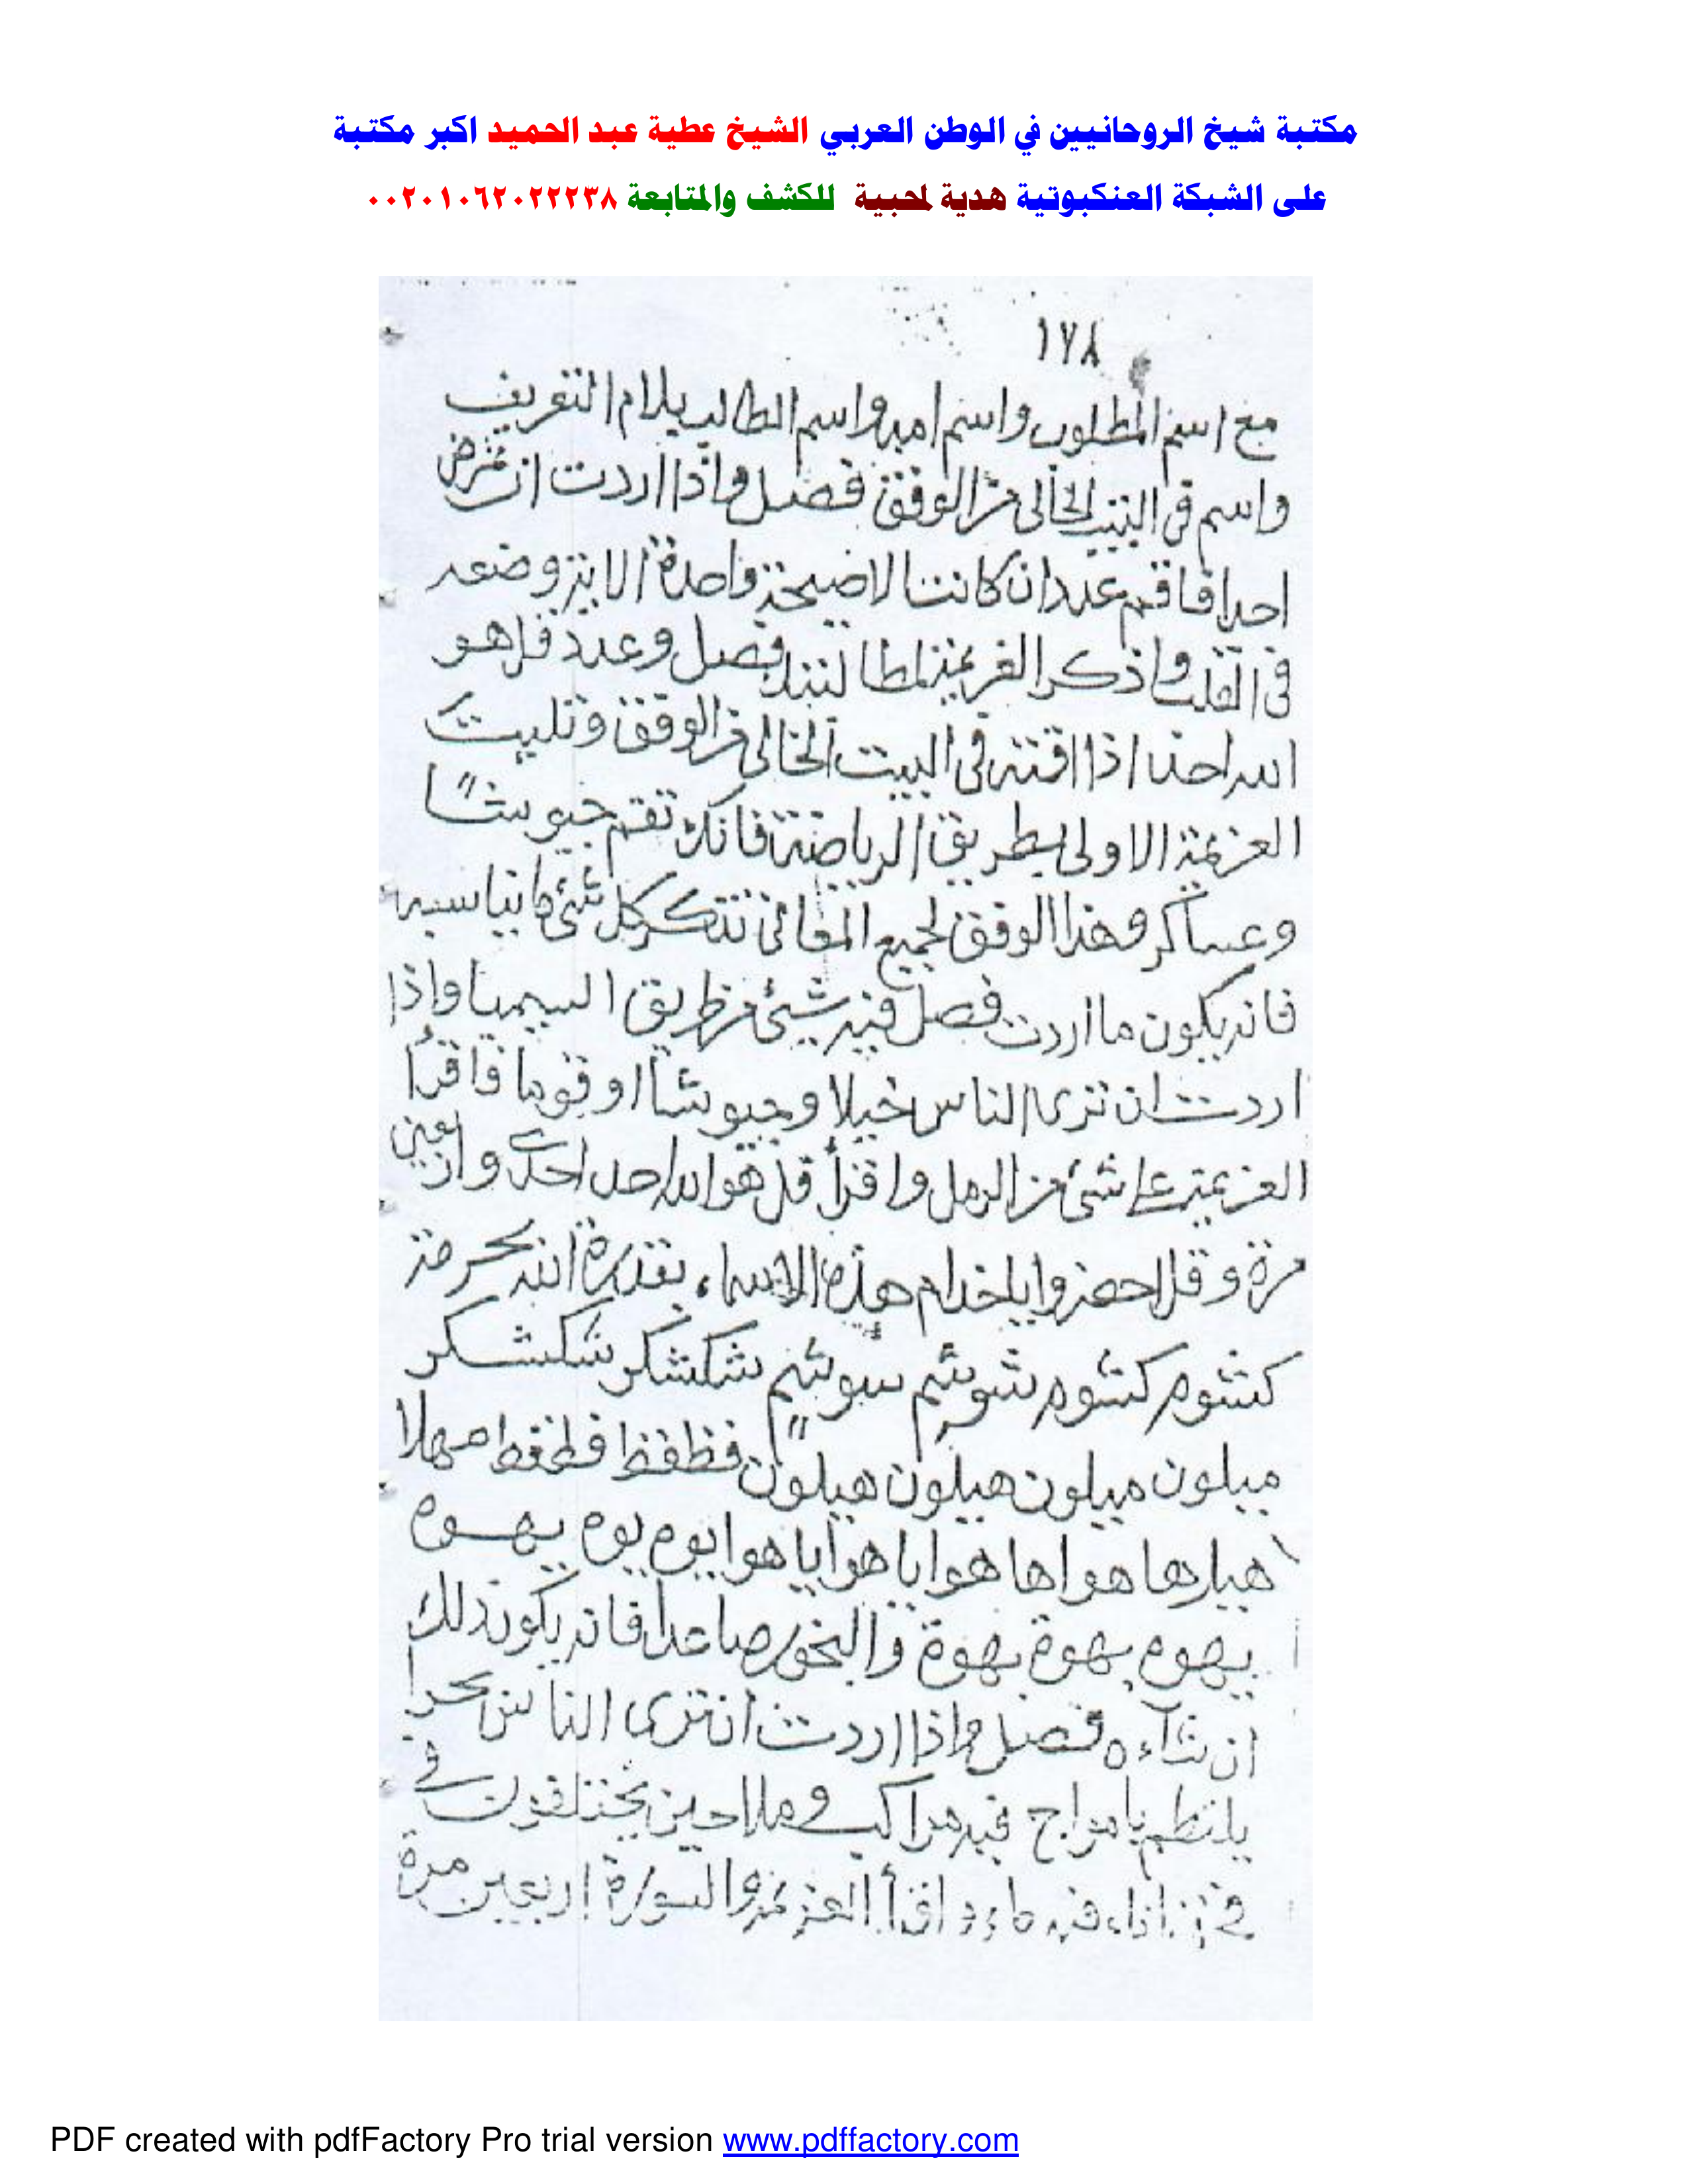 مكتبة شيخ الروحانيين في الوطن العربي الشيخ عطية عبد الحميد اكبر مكتبة
على الشبكة العنكبوتية هدية لمحبية للكشف والمتابعة ٠٠٢٠١٠٦٢٠٢٢٢٣٨
١٧٨
مع اسم المطلوب واسم امه واسم الطالب بلام التعريف
واسم في البيت الخالي من الوفق فصل واذا اردت ان تمرض
احدا فاقم عدد ان كانت الا صيحة واحدة الاية وضعه
في القلب واذكر العزيمة فصل وعدد قل هو
الله احد اذا اقمته في البيت الخالي من الوفق وتليت
العزيمة الاولى بطريق الرياضة فانك تقم جيوشا
وعساكر وهذا الوفق لجميع المعاني كل شئ ما يناسبه
فانه يكون ما اردت فصل فيه شئ من طريق السيميا واذا
اردت ان ترى الناس خيلا وجيوشا او قوما فاقرأ
العزيمة على شئ من الرمل واقرأ قل هو الله احد احدى واربعين
مرة وقل احضروا يا خدام هذه الاسماء بقدرة الله بحرمة
كشوم كشوم شوشم سوشم شكشكر شكشكر
ميلون ميلون هيلون هيلون فظفظ فطفط مهلا
هيارها هواها هوايا هوايا هوا يوم يوم يهوه
يهوه يهوة يهوة والبخور صاعدا فانه يكون ذلك
ان شاء ه فصل واذا اردت ان ترى الناس بحرا
يلتطم بامواج فيه مراكب وملاحين يختلفون في
اناء فيه ماء واقرأ العزيمة والسورة اربعين مرة
PDF created with pdfFactory Pro trial version www.pdffactory.com